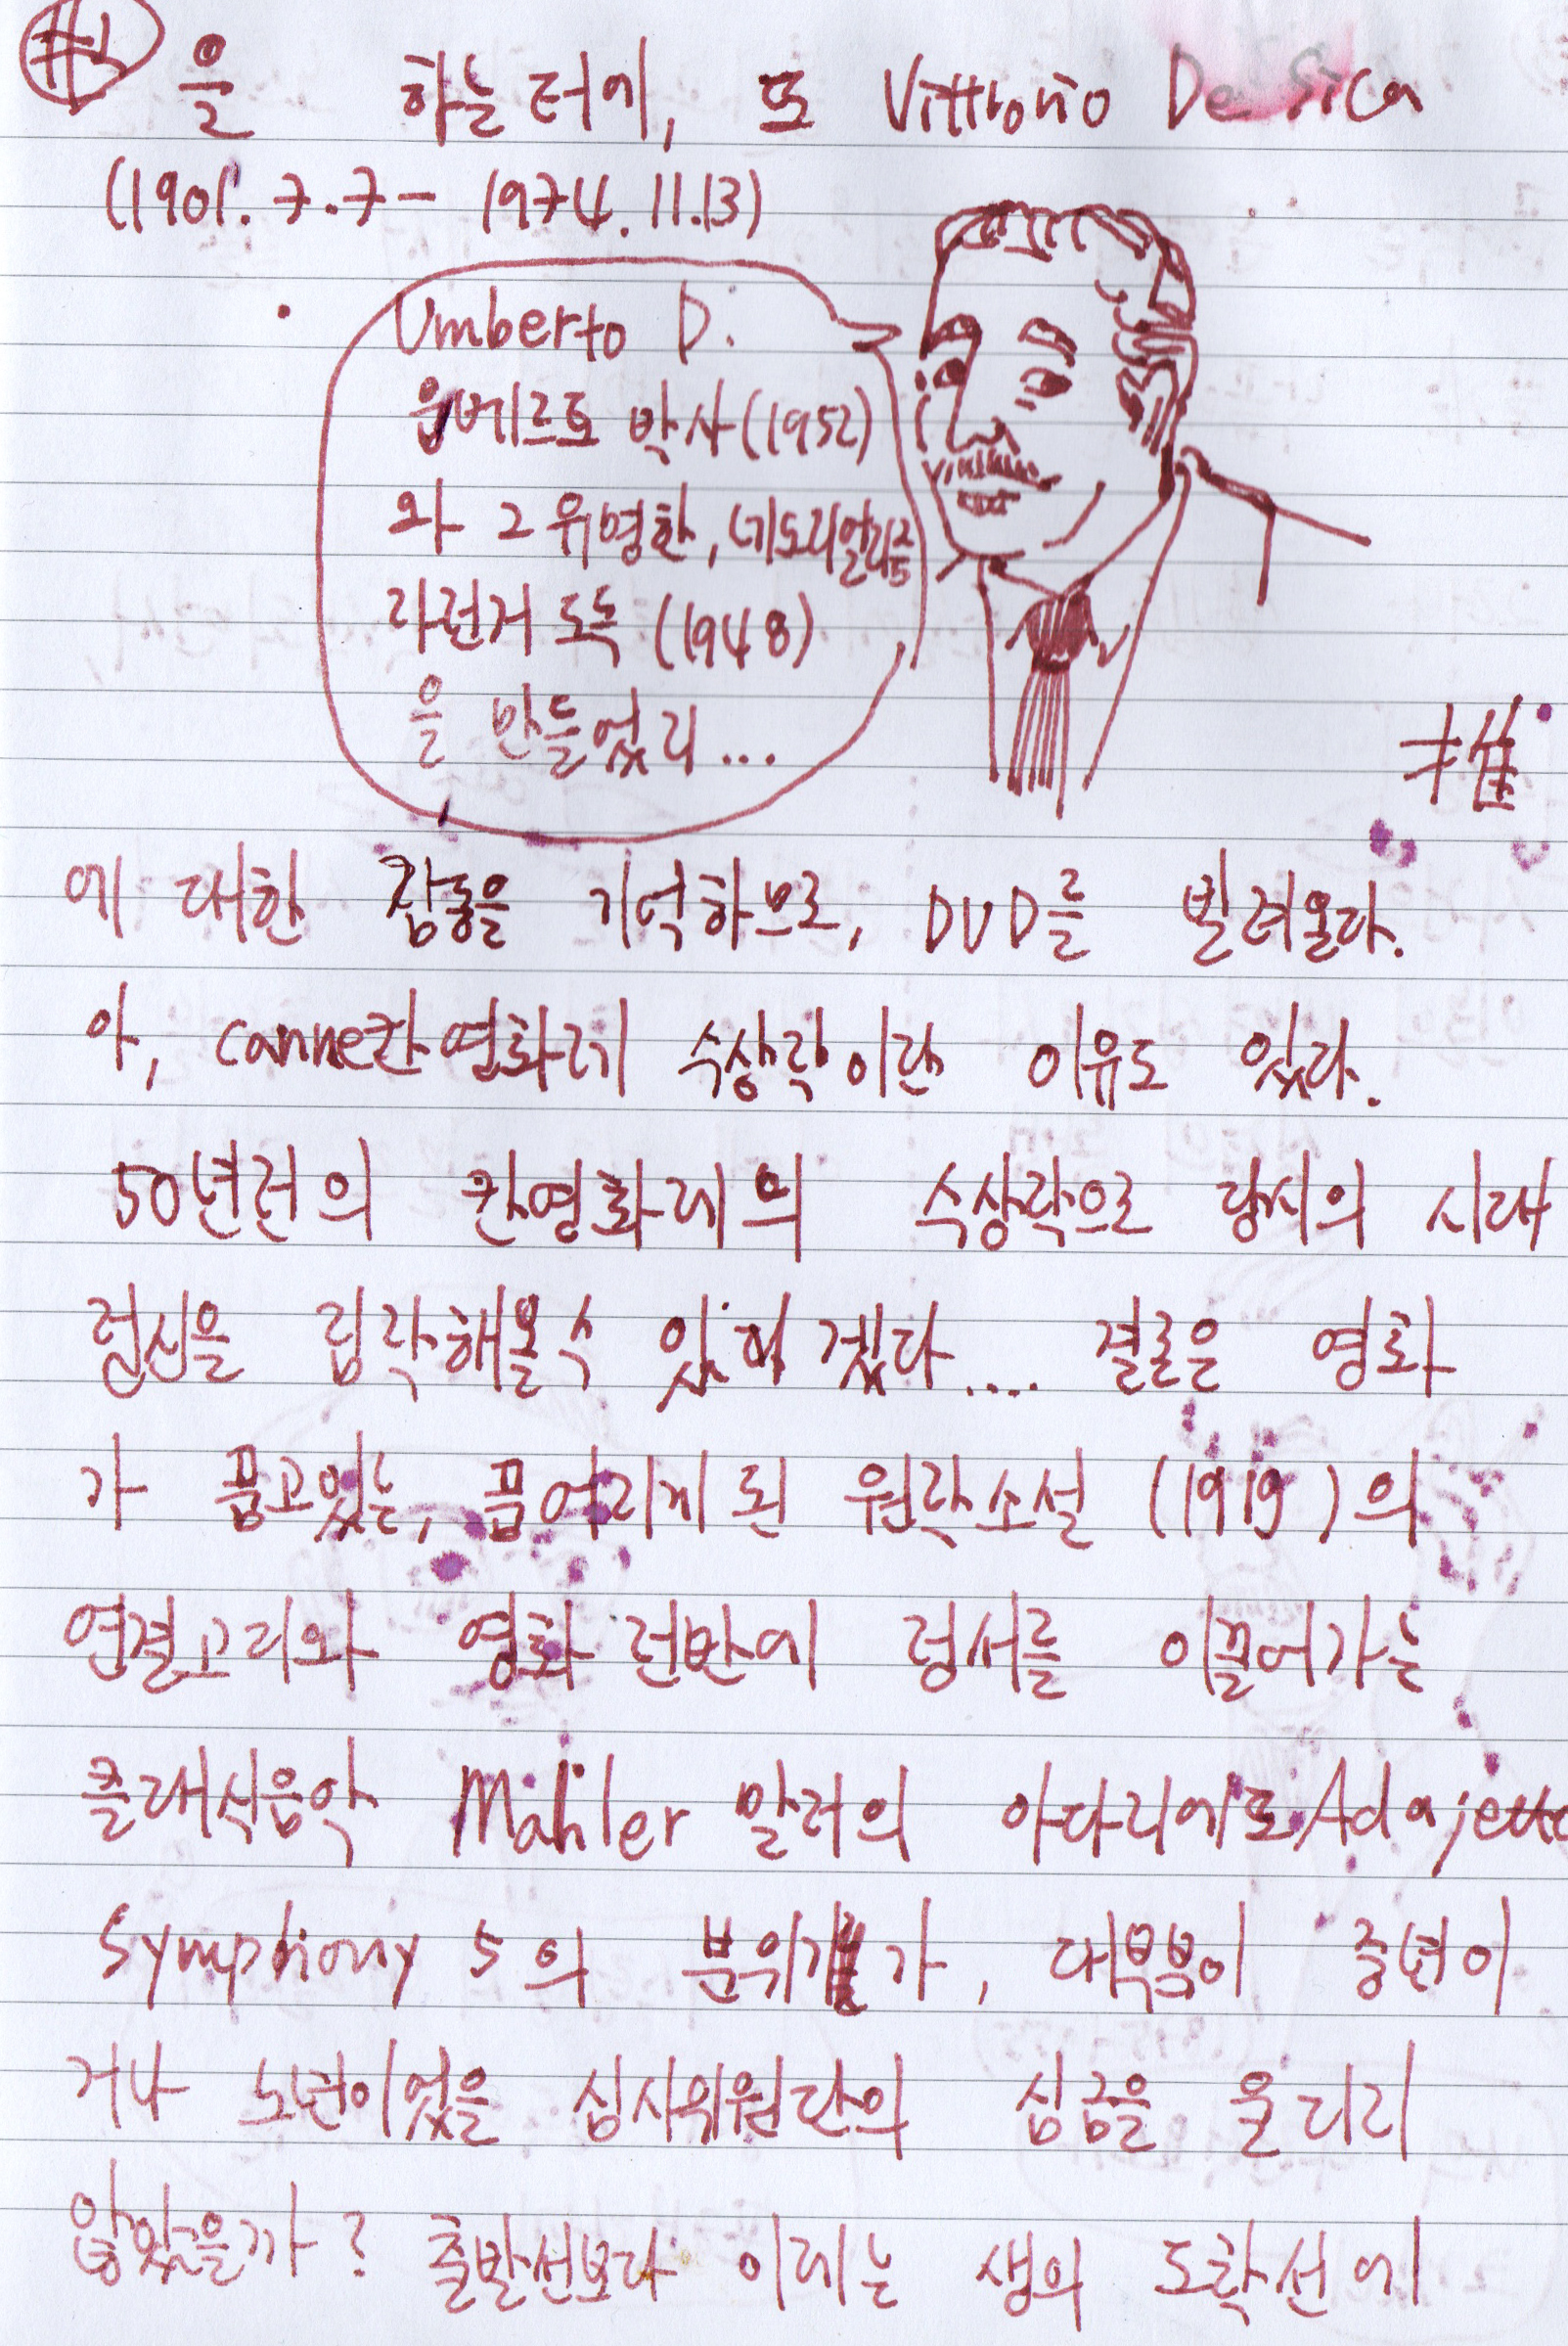 을 하는터에, 또 Vittrorio De Sica
(1901. 7. 7 - 1974. 11. 13)
Umberto D.
움베르토 박사 (1952)
와 그 유명한, 네오리얼리즘
자전거 도둑 (1948)
을 만들었지...
에 대한 감동을 기억하므로, DVD를 빌려온다.
아, canne칸영화제 수상작이란 이유도 있다.
50년전의 칸영화제의 수상작으로 당시의 시대
정신을 짐작해볼수 있 겠다.... 결론은 영화
가 품고있는, 품어지게 된 원작소설 (1919)의
연결고리와 영화 전반에 정서를 이끌어가는
클래식음악 Mahler 말러의 아다지에토 Adajetto
Symphony 5의 분위기가, 대부분이 중년이
거나 노년이었을 심사위원단의 심금을 울리지
않았을까? 출발선보다 이제는 생의 도착선에